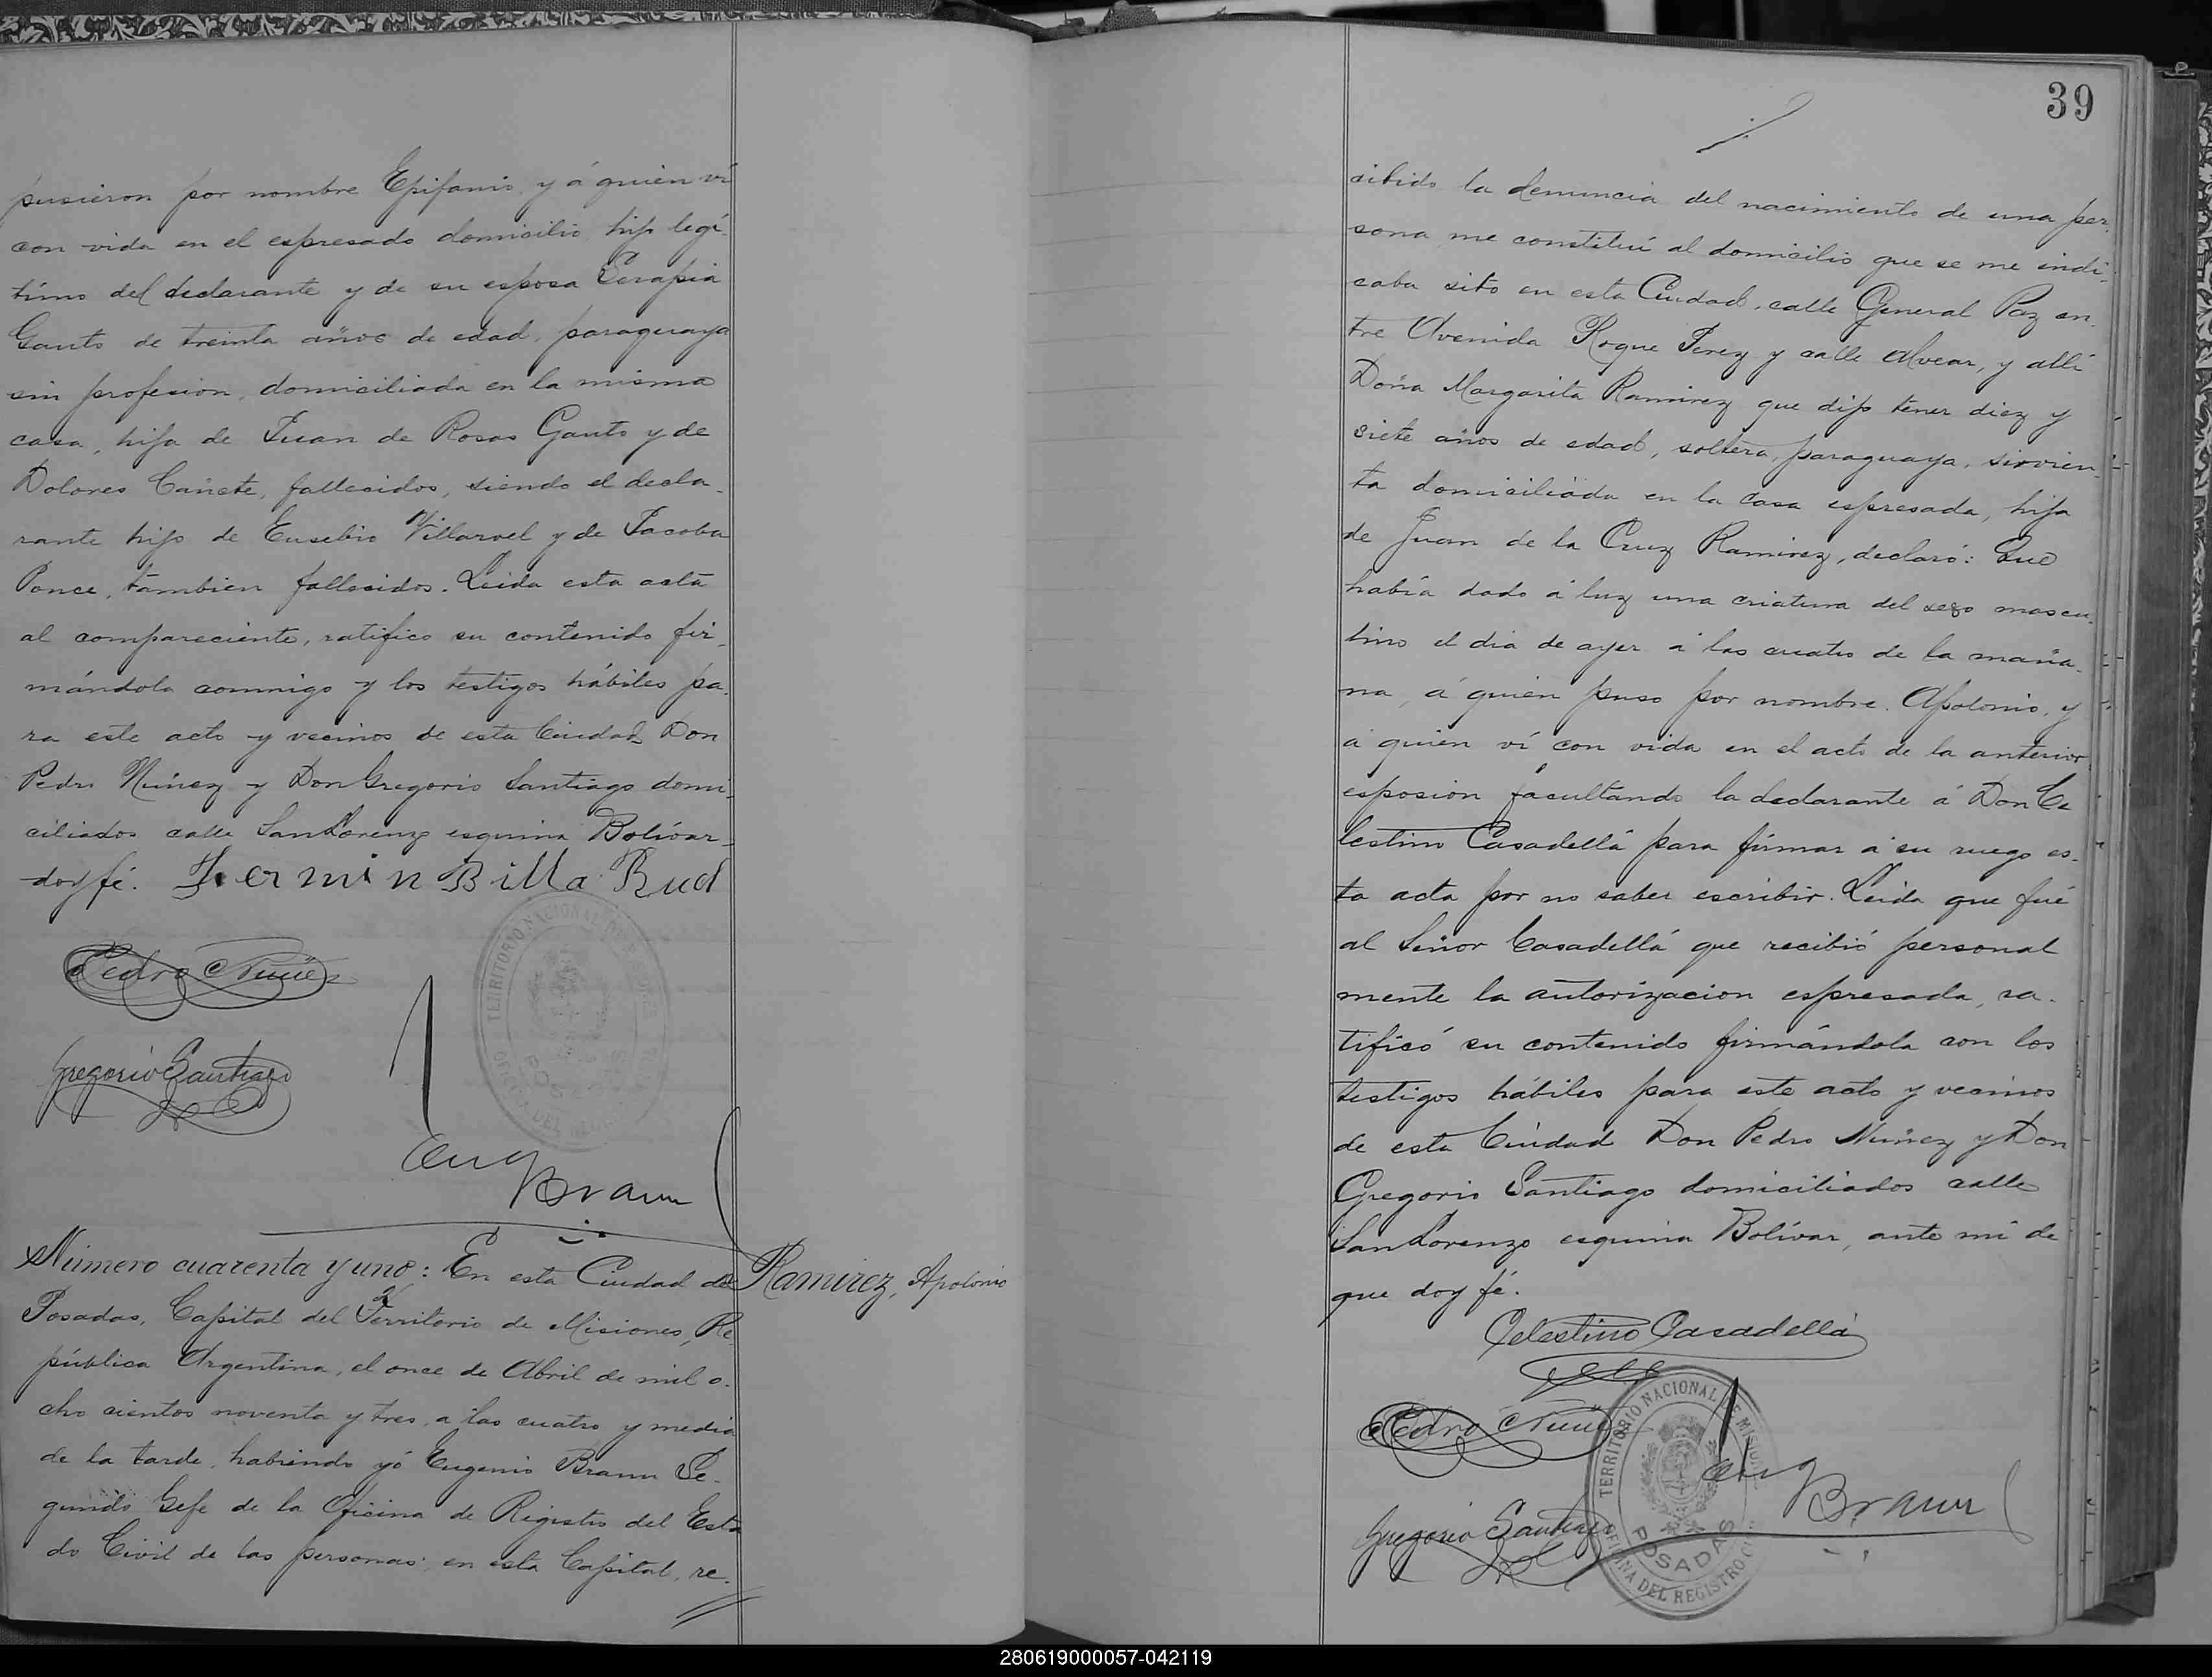 pusieron por nombre Epifanio y á quien ví
con vida en el espresado domicilio hijo legí-
timo del declarante y de su esposa Serapia
Gauto de treinta años de edad, paraguaya
sin profesion, domiciliada en la misma
casa, hija de Juan de Rosas Gauto y de
Dolores Cañete, fallecidos, siendo el decla-
rante hijo de Eusebio Villaroel y de Jacoba
Ponce, tambien fallecidos. Leida esta acta
al compareciente, ratificó su contenido fir-
mándola conmigo y los testigos hábiles pa-
ra este acto y vecinos de esta Ciudad Don
Pedro Núñez y Don Gregorio Santiago domi-
ciliados calle San Lorenzo esquina Bolívar-
doy fé. Fermin Billa Ruel
Pedro Nuñez
Gregorio Santiago
TERRITORIO NACIONAL DE MISIONES
POSADAS
OFICINA DEL REGISTRO
Eug Braun
Número cuarenta y uno: En esta Ciudad de
Ramirez, Apolonio
Posadas, Capital del Territorio de Misiones, Re-
pública Argentina, el once de Abril de mil o-
cho cientos noventa y tres, a las cuatro y media
de la tarde, habiendo yó Eugenio Braun Se-
gundo Gefe de la Oficina de Registro del Esta
do Civil de las personas en esta Capital, re-
39
cibido la denuncia del nacimiento de una per-
sona me constituí al domicilio que se me indi-
caba sito en esta Ciudad, calle General Paz en-
tre Avenida Roque Perez y calle Alvear, y allí
Doña Margarita Ramirez que dijo tener diez y
siete años de edad, soltera, paraguaya, sirvien-
ta domiciliada en la casa espresada, hija
de Juan de la Cruz Ramirez, declaró: Que
había dado á luz una criatura del sexo mascu-
lino el dia de ayer á las cuatro de la maña-
na, á quien puso por nombre Apolonio, y
á quien ví con vida en el acto de la anterior
esposion facultando la declarante á Don Ce
lestino Casadellá para firmar á su ruego es-
ta acta por no saber escribir. Leida que fué
al Señor Casadellá que recibió personal
mente la autorizacion espresada, ra-
tificó su contenido firmándola con los
testigos hábiles para este acto y vecinos
de esta Ciudad Don Pedro Núñez y Don
Gregorio Santiago domiciliados calle
San Lorenzo esquina Bolívar, ante mí de
que doy fé.
Celestino Casadellá
Pedro Nuñez
Gregorio Santiago
TERRITORIO NACIONAL DE MISIONES
POSADAS
OFICINA DEL REGISTRO CIVIL
Eug Braun
280619000057-042119